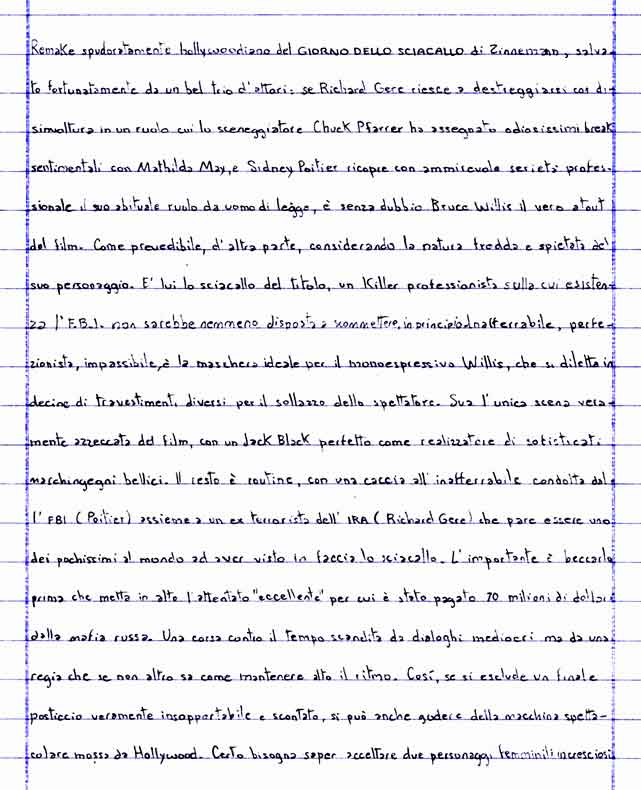 Remake spudoratamente hollywoodiano del GIORNO DELLO SCIACALLO di Zinnemann, salva-
to fortunatamente da un bel trio d'attori: se Richard Gere riesce a destreggiarsi con di-
sinvoltura in un ruolo cui lo sceneggiatore Chuck Pfarrer ha assegnato odiosissimi break
sentimentali con Mathilda May, e Sidney Poitier ricopre con ammirevole serietà profes-
sionale il suo abituale ruolo da uomo di legge, è senza dubbio Bruce Willis il vero atout
del film. Come prevedibile, d'altra parte, considerando la natura fredda e spietata del
suo personaggio. E' lui lo sciacallo del titolo, un Killer professionista sulla cui esisten-
za l'F.B.I. non sarebbe nemmeno disposta a scommettere, in principio. Inafferrabile, perfe-
zionista, impassibile, è la maschera ideale per il monoespressivo Willis, che si diletta in
decine di travestimenti diversi per il sollazzo dello spettatore. Sua l'unica scena vera-
mente azzeccata del film, con un Jack Black perfetto come realizzatore di sofisticati
marchingegni bellici. Il resto è routine, con una caccia all'inafferrabile condotta dal
l'FBI (Poitier) assieme a un ex terrorista dell'IRA (Richard Gere) che pare essere uno
dei pochissimi al mondo ad aver visto in faccia lo sciacallo. L'importante è beccarlo
prima che metta in atto l'attentato "eccellente" per cui è stato pagato 70 milioni di dollari
dalla mafia russa. Una corsa contro il tempo scandita da dialoghi mediocri ma da una
regia che se non altro sa come mantenere alto il ritmo. Così, se si esclude un finale
posticcio veramente insopportabile e scontato, si può anche godere della macchina spetta-
colare mossa da Hollywood. Certo bisogna saper accettare due personaggi femminili incresciosi